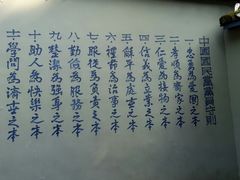 中國國民黨黨員守則
一忠勇為愛國之本
二孝順為齊家之本
三仁愛為接物之本
四信義為立業之本
五和平為處世之本
六禮節為治事之本
七服從為負責之本
八勤儉為服務之本
九整潔為強身之本
十助人為快樂之本
十一學問為濟世之本